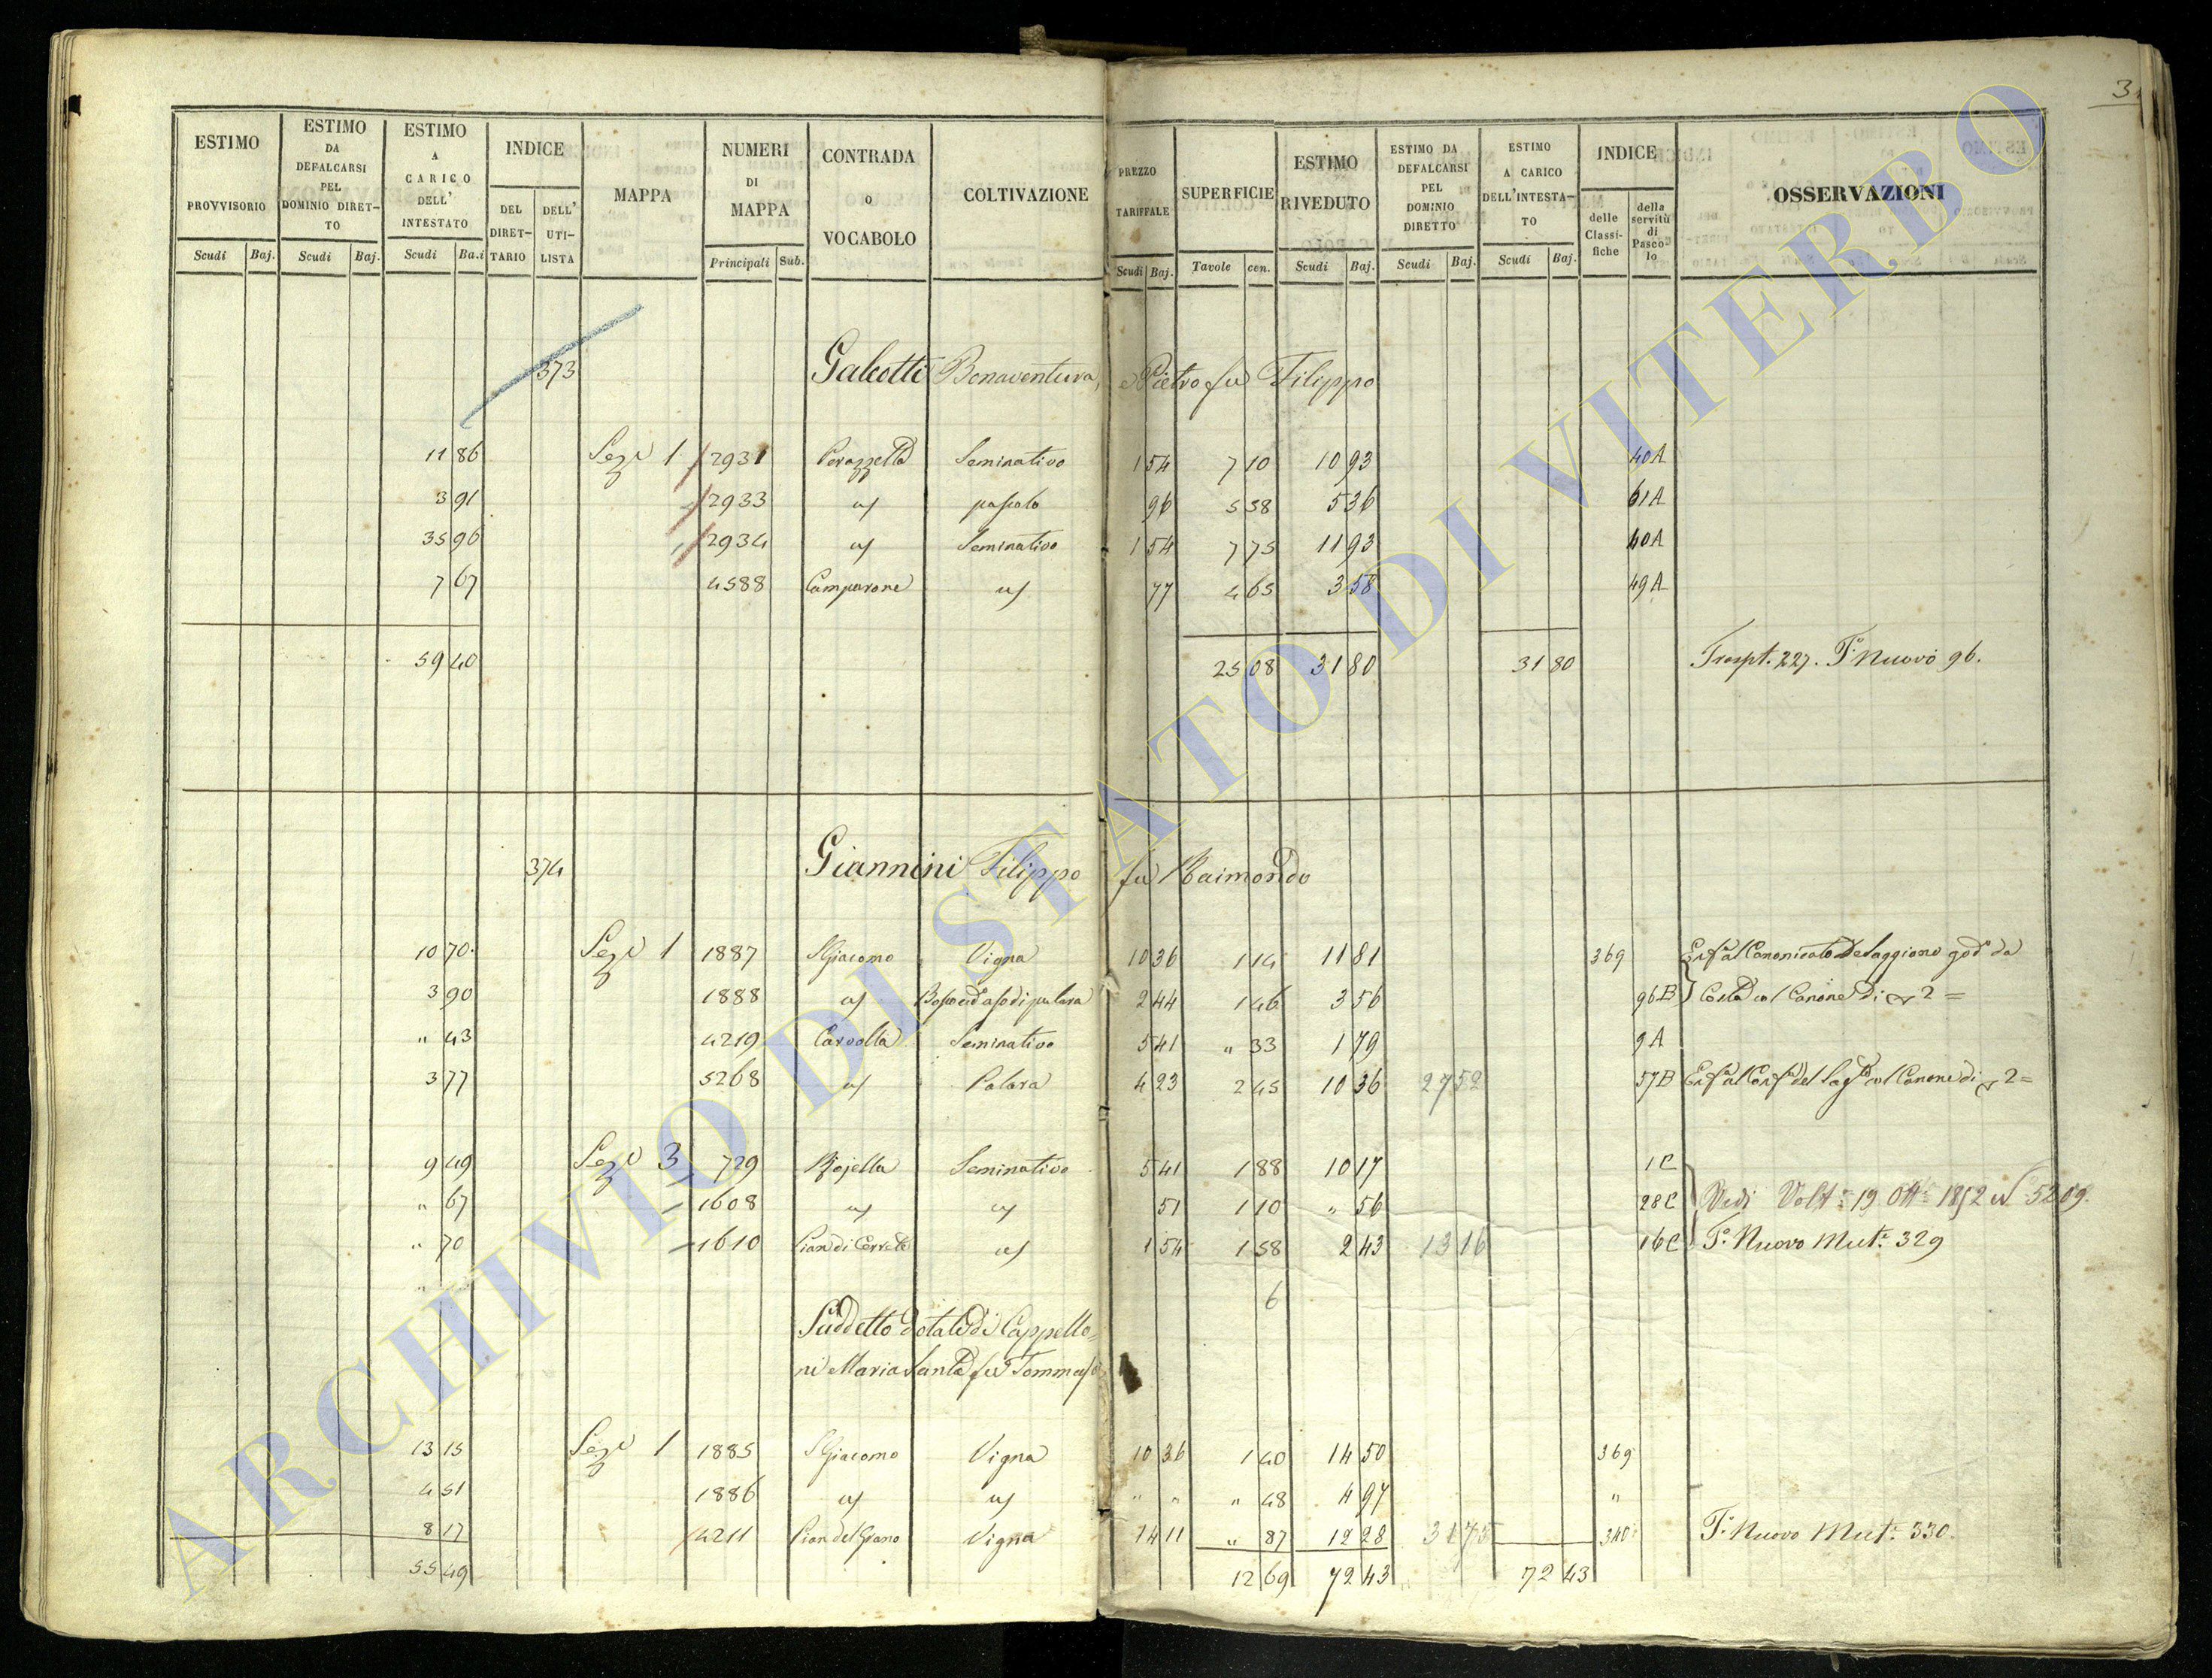 3
ESTIMO PROVVISORIO Scudi Baj.
ESTIMO DA DEFALCARSI PEL DOMINIO DIRETTO Scudi Baj.
ESTIMO A CARICO DELL' INTESTATO Scudi Ba.i
INDICE DEL DIRETTARIO DELL' UTILISTA
MAPPA
NUMERI DI MAPPA Principali Sub.
CONTRADA o VOCABOLO
COLTIVAZIONE
PREZZO TARIFFALE Scudi Baj.
SUPERFICIE Tavole cen.
ESTIMO RIVEDUTO Scudi Baj.
ESTIMO DA DEFALCARSI PEL DOMINIO DIRETTO Scudi Baj.
ESTIMO A CARICO DELL'INTESTATO Scudi Baj.
INDICE delle Classifiche della servitù di Pascolo
OSSERVAZIONI
373 Galeotti Bonaventura, e Pietro fu Filippo
11 86 Sez. 1 2931 Seminativo 1 54 7 10 10 93 40A
3 91 2933 " pascolo 96 5 58 5 36 61A
35 96 2934 " Seminativo 1 54 7 75 11 93 40A
7 67 4588 Camparone " 77 4 65 3 58 49A
59 40 25 08 31 80 31 80 Traspt. 227. To. Nuovo 96.
374 Giannini Filippo fu Raimondo
10 70. Sez. 1 1887 S Giacomo Vigna 10 36 1 14 11 81 369
3 90 1888 " 2 44 1 46 3 56 96B col Canone di 2 =
" 43 4219 Seminativo 5 41 " 33 1 79 9A
3 77 5268 " Palara 4 23 2 45 10 36 27 52 57B col Canone di 2 =
9 49 Sez. 3 729 Seminativo 5 41 1 88 10 17 1C
" 67 1608 " " 51 1 10 " 56 28C Vedi Volt. 19 Ott. 1852 N. 5209.
" 70 1610 Pian di Cerreto " 1 54 1 58 2 43 13 16 16C To. Nuovo Mut. 329
6
Suddetto dotale di Cappello=
ni Maria Santa fu Tommaso
13 15 Sez. 1 1885 S Giacomo Vigna 10 36 1 40 14 50 369
4 51 1886 " " " " " 48 4 97 "
8 17 4211 Pian del Grano Vigna 14 11 " 87 12 28 31 75 340 To. Nuovo Mut. 330.
55 49 12 69 72 43 72 43
ARCHIVIO DI STATO DI VITERBO